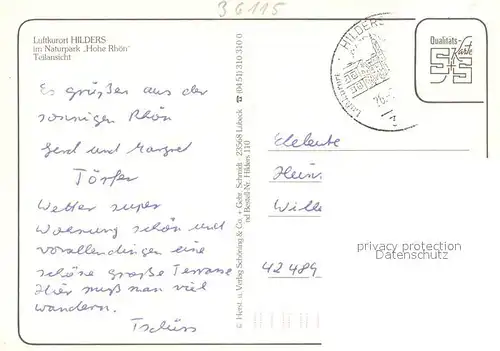 B 6115
Luftkurort HILDERS
im Naturpark „Hohe Rhön"
Teilansicht
Es grüßen aus der
sonnigen Rhön
Gerd und Margret
Törfer
Wetter super
Wohnung schön und
vorallendingen eine
schöne große Terrasse
Hier muß man viel
wandern.
Tschüss
© Herst. u. Verlag Schöning & Co. + Gebr. Schmidt · 23568 Lübeck ☎ (0451) 310 310 0
nd Bestell-Nr. Hilders 110
HILDERS
Luftkurort
26.
Qualitäts-
Karte
Eheleute
Hein
Will
42489
privacy protection
Datenschutz